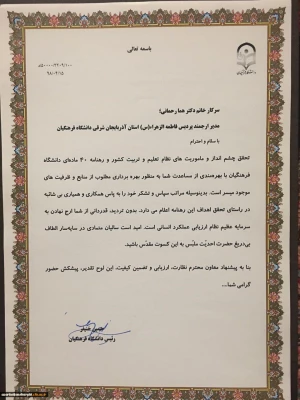 باسمه تعالی
۵۰۰۰۰/۱۲۲۰۹/۱۰۰
۹۸/۰۲/۱۵
سرکار خانم دکتر هما رحمانی؛
مدیر ارجمند پردیس فاطمه الزهرا(س) استان آذربایجان شرقی دانشگاه فرهنگیان
با سلام و احترام
تحقق چشم انداز و ماموریت های نظام تعلیم و تربیت کشور و رهنامه ۴۰ ماده‌ای دانشگاه
فرهنگیان با بهره‌مندی از مساعدت شما به منظور بهره برداری مطلوب از منابع و ظرفیت های
موجود میسر است. بدینوسیله مراتب سپاس و تشکر خود را به پاس همکاری و همیاری بی شائبه
در راستای تحقق اهداف این رهنامه اعلام می دارد. بدون تردید، قدردانی از شما ارج نهادن به
سرمایه عظیم نظام ارزیابی عملکرد انسانی است. امید است سالیان متمادی در سایه‌سار الطاف
بی‌دریغ حضرت احدیّت ملبّس به این کسوت مقدّس باشید.
بنا به پیشنهاد معاون محترم نظارت، ارزیابی و تضمین کیفیت، این لوح تقدیر، پیشکش حضور
گرامی شما...
رئیس دانشگاه فرهنگیان